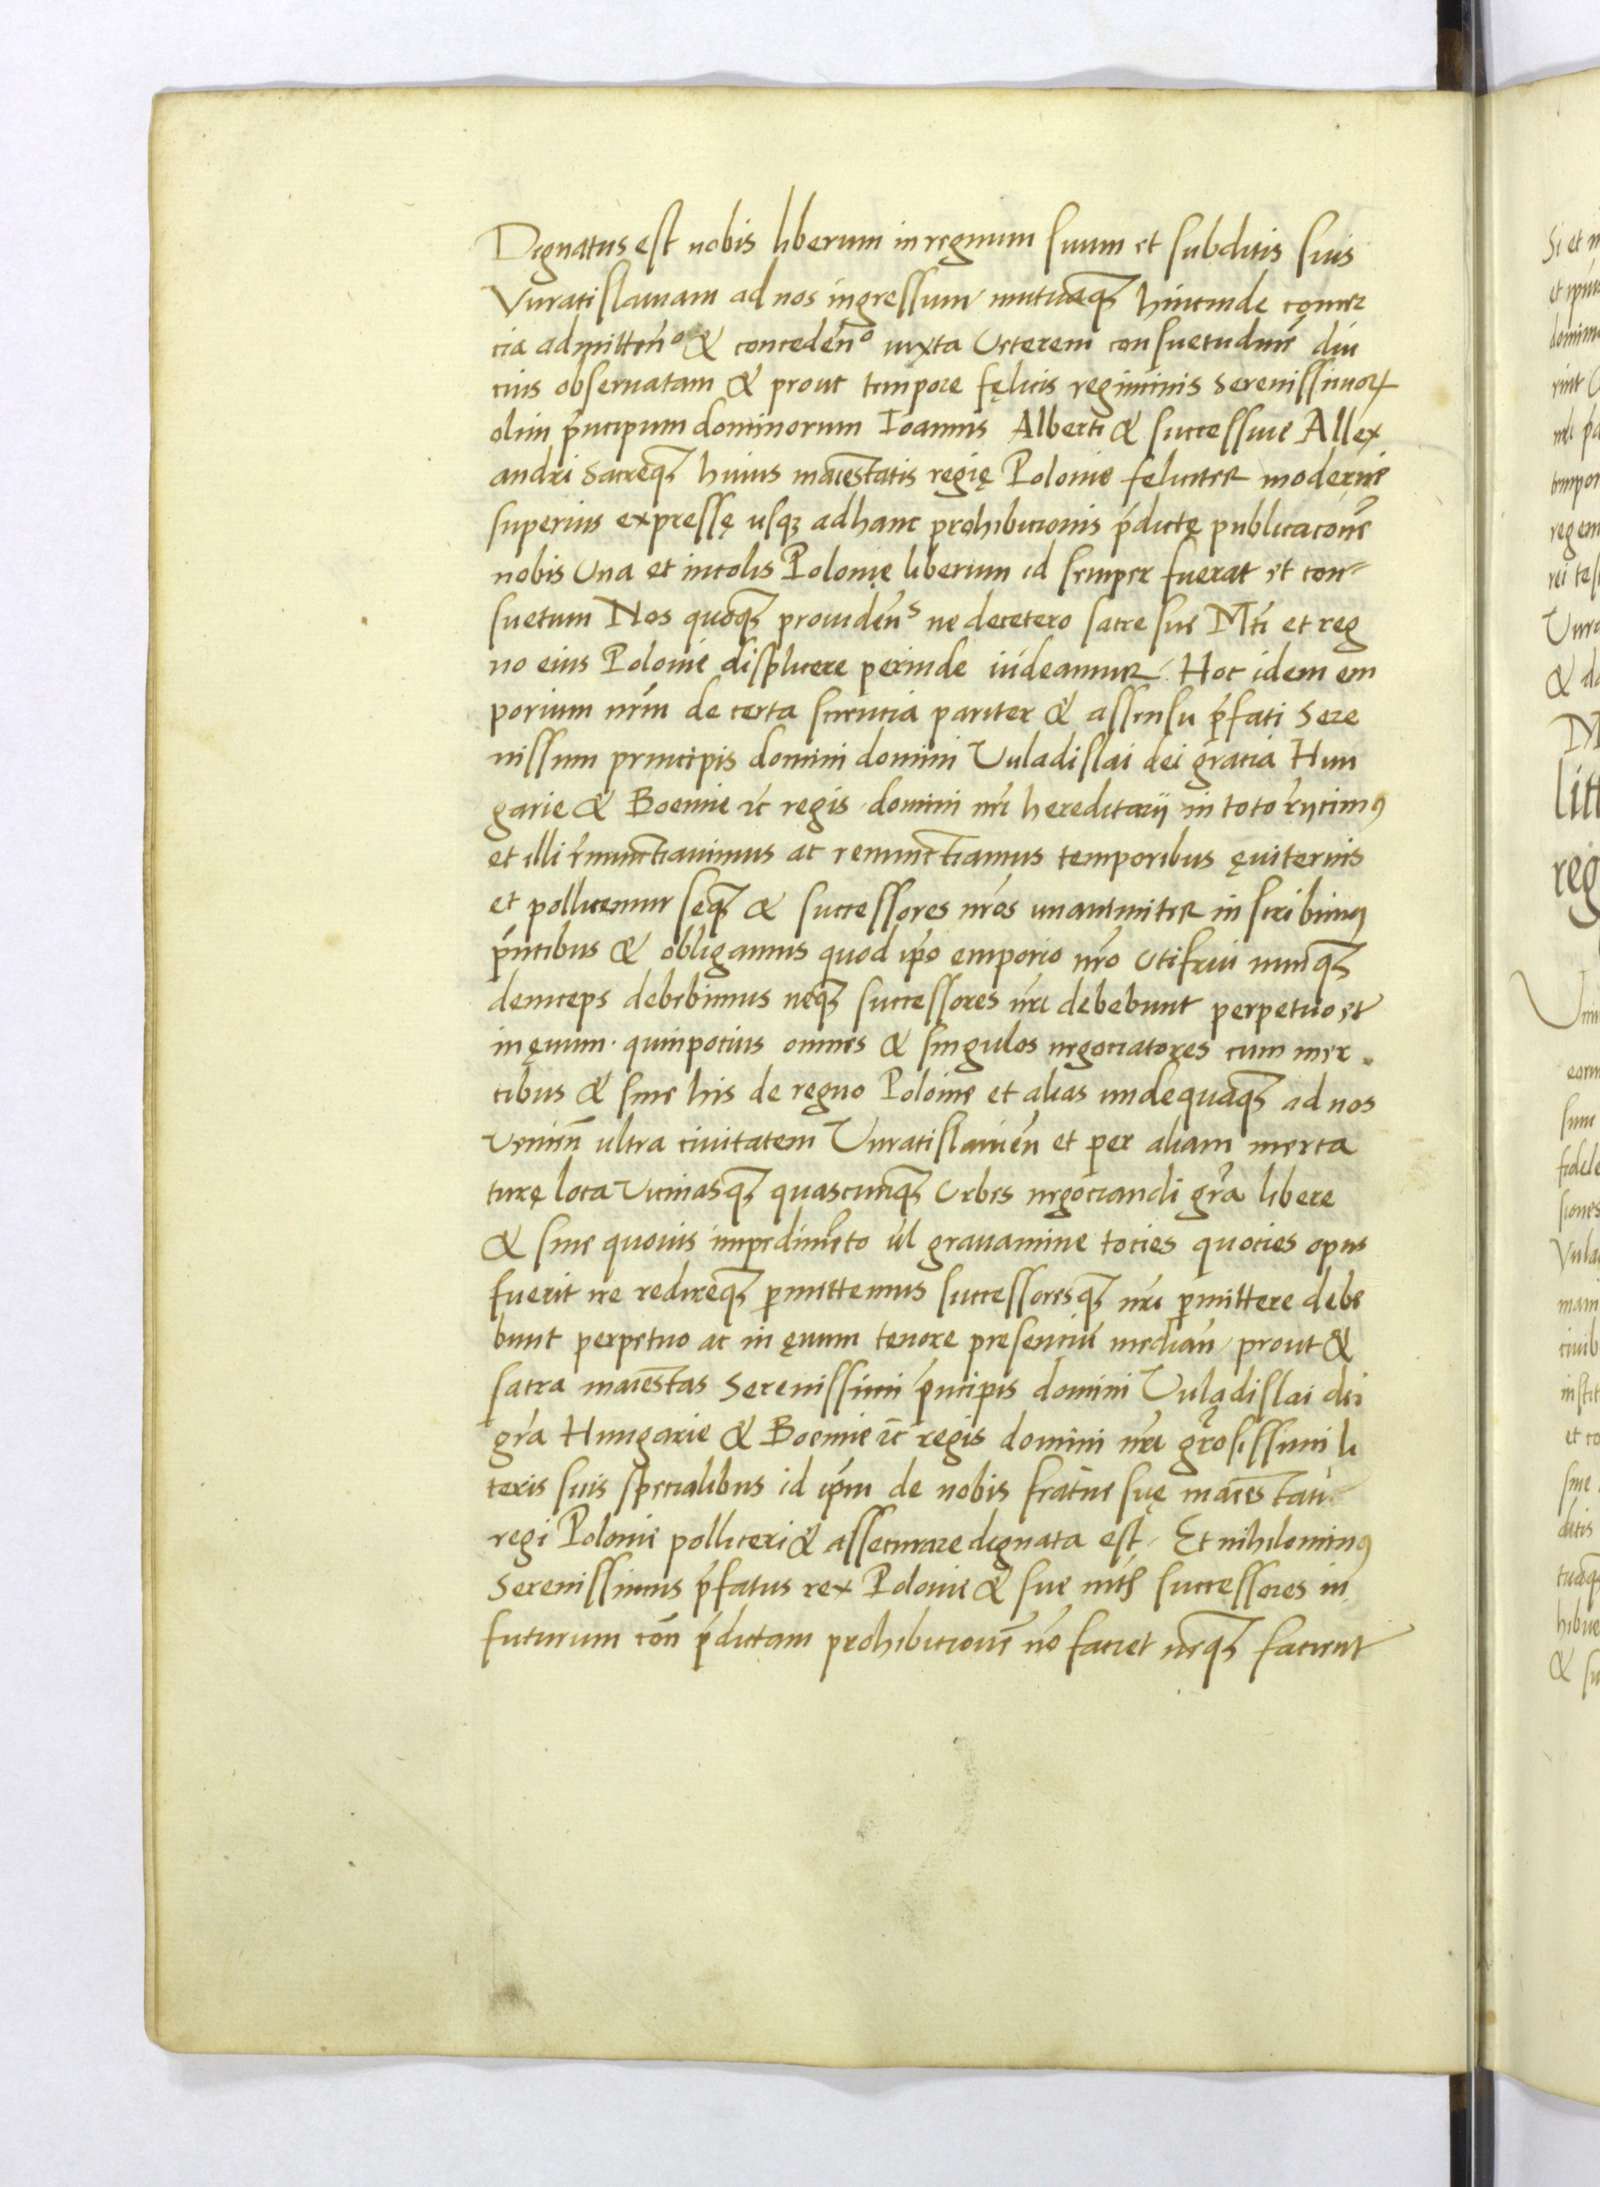 Dignatus est nobis liberum in regnum suum et subditis suis
Vuratislauiam ad nos ingressum mutuaqȝ hincinde comer
cia admitteñº & concedeñº iuxta Veterem consuetudinē diu
cius obseruatam & prout tempore fęlicis regiminis Serenissimoꝝ
olim p̄ncipum dominorum Ioannis Alberti & successiue Allex
andri Sacreqȝ huius maiestatis regię Polonie feliciter moderne
superius expressę usqȝ ad hanc prohibicionis p̄dictę publicacōnē
nobis Una et incolis Polonię liberum id semper fuerat et con-
suetum Nos quoqȝ prouideñˢ ne decetero sacre sue Mti et reg
no eius Polonie displicere perinde uideamur. Hoc idem em
porium nr̄m de certa sciencia pariter & assensu p̄fati Sere
nissimi principis domini domini Vuladislai dei gratia Hun
garie & Boemie ⁊c regis domini nr̄i hereditarii in toto reiicimꝰ
et illi renunctiauimus ac renunctiamus temporibus ęuiternis
et pollicemur seqȝ & successores nr̄os unanimiter inscribimꝰ
p̄ntibus & obligamus quod ip̄o emporio nr̄o Uti frui nunqȝ
deinceps debebimus neqȝ successores nr̄i debebunt perpetuo et
in ęuum. quinpocius omnes & singulos negociatores cum mer
cibus & sine his de regno Polonie et alias undequaqȝ ad nos
Venieñ ultra ciuitatem Vuratislauieñ et per aliam merca
turę loca Vicinasqȝ quascunqȝ Urbes negociandi gr̄a libere
& sine quouis impedimēto ul̄ grauamine tocies quocies opus
fuerit ire redireqȝ permittemus successoresqȝ nr̄i permittere debe
bunt perpetuo ac in ęuum tenore presenciū mediañ prout &
sacra maiestas Serenissimi p̄ncipis domini Vuladislai dei
gr̄a Hungarie & Boemie ⁊c regis domini nr̄i gr̄osissimi li
teris suis specialibus id ip̄m de nobis fratne suę maiestati
regi Polonie polliceri & assecurare dignata est. Et nihilominꝰ
Serenissimus p̄fatus rex Polonie & sue mtis successores in
futurum coñ p̄dictam prohibicionē nō faciet neqȝ facient